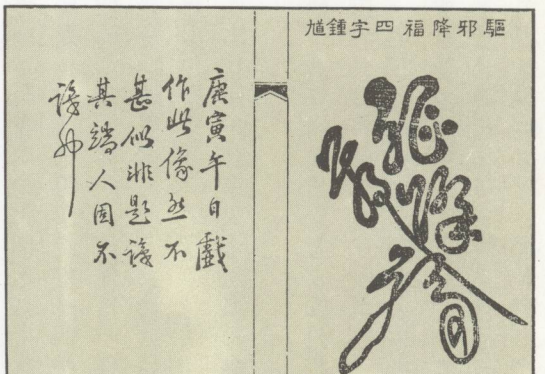 驅邪降福四字鍾馗
庚寅午日戲
作此像然不
甚似非題識
其端人固不
識也